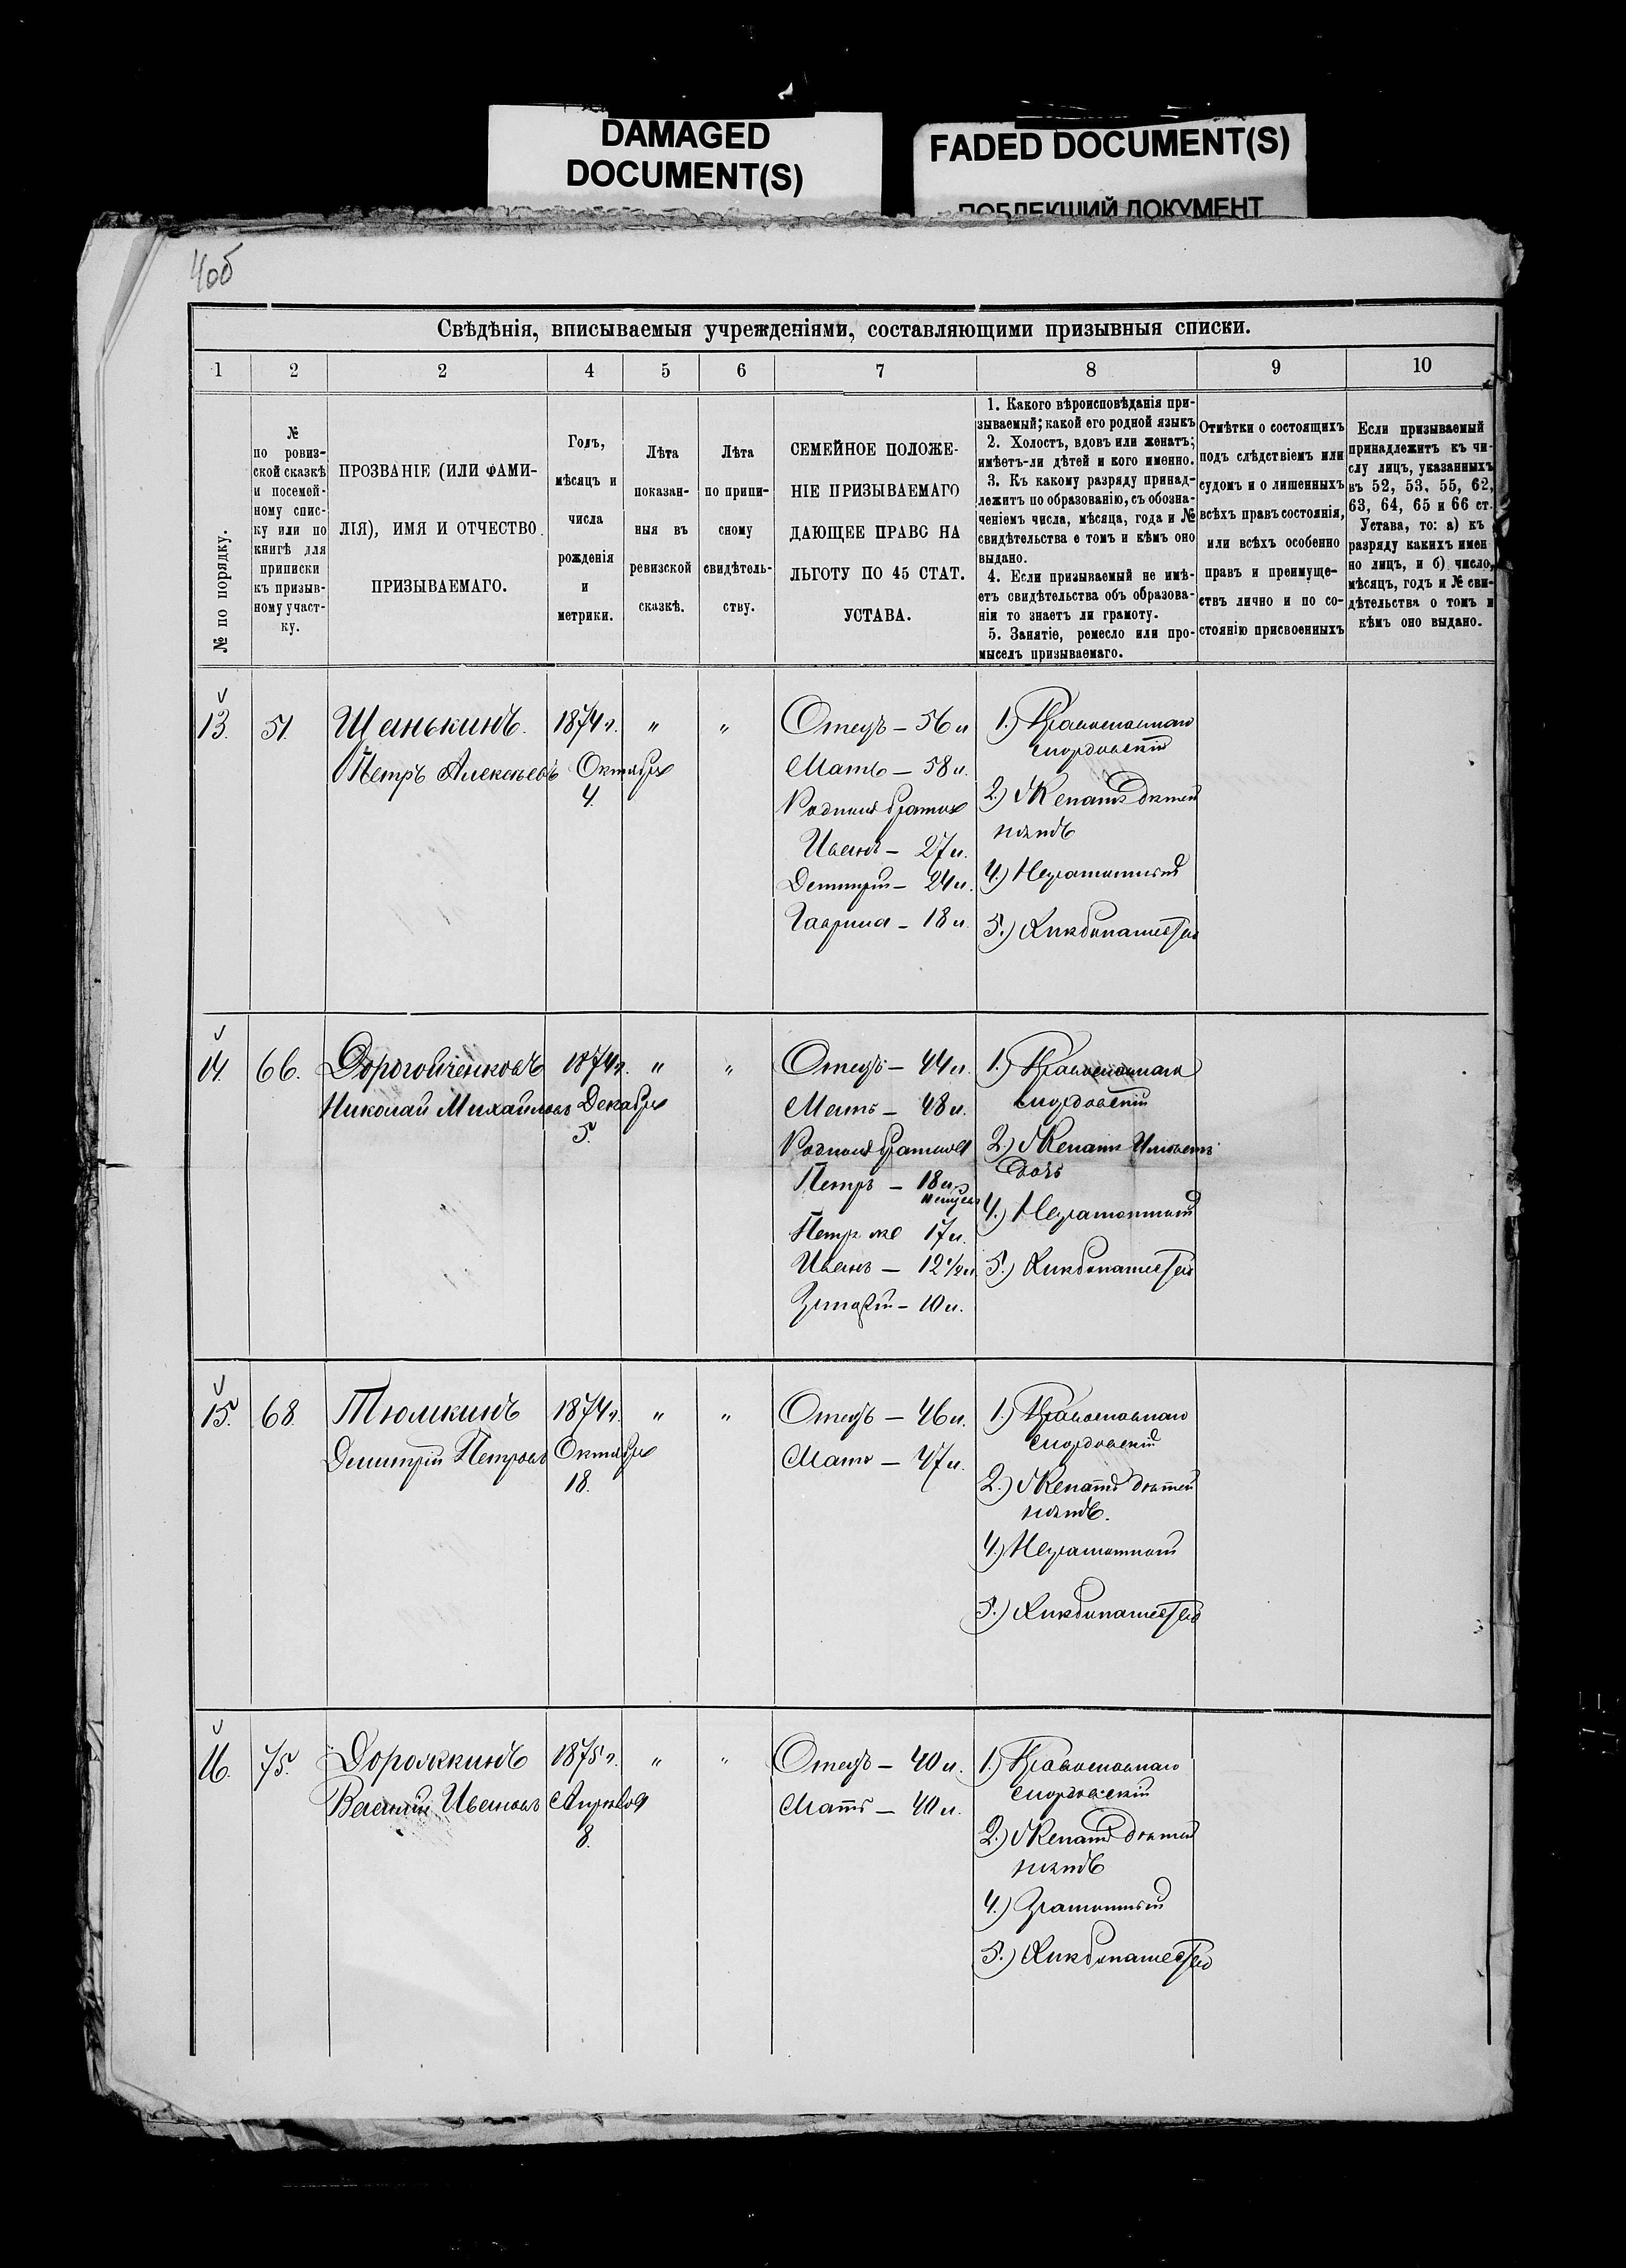 DAMAGED
DOCUMENT(S)
FADED DOCUMENT(S)
ПОБЛЕКШИЙ ДОКУМЕНТ
4об
Свѣдѣнія, вписываемыя учрежденіями, составляющими призывныя списки.
1 2 2 4 5 6 7 8 9 10
№ по порядку.
№
по ровиз-
ской сказкѣ
и посемей-
ному спис-
ку или по
книгѣ для
приписки
къ призыв-
ному участ-
ку.
ПРОЗВАНІЕ (ИЛИ ФАМИ-
ЛІЯ), ИМЯ И ОТЧЕСТВО
ПРИЗЫВАЕМАГО.
Годъ,
мѣсяцъ и
числа
рожденія
и
метрики.
Лѣта
показан-
ныя въ
ревизской
сказкѣ.
Лѣта
по припи-
сному
свидѣтель-
ству.
СЕМЕЙНОЕ ПОЛОЖЕ-
НІЕ ПРИЗЫВАЕМАГО
ДАЮЩЕЕ ПРАВО НА
ЛЬГОТУ ПО 45 СТАТ.
УСТАВА.
1. Какого вѣроисповѣданія при-
зываемый; какой его родной языкъ
2. Холостъ, вдовъ или женатъ;
имѣетъ-ли дѣтей и кого именно.
3. Къ какому разряду принад-
лежитъ по образованію, съ обозна-
ченіемъ числа, мѣсяца, года и №
свидѣтельства о томъ и кѣмъ оно
выдано.
4. Если призываемый не имѣ-
етъ свидѣтельства объ образова-
ніи то знаетъ ли грамоту.
5. Занятіе, ремесло или про-
мыселъ призываемаго.
Отмѣтки о состоящихъ
подъ слѣдствіемъ или
судомъ и о лишенныхъ
всѣхъ правъ состоянія,
или всѣхъ особенно
правъ и преимуще-
ствъ лично и по со-
стоянію присвоенныхъ
Если призываемый
принадлежитъ къ чи-
слу лицъ, указанныхъ
въ 52, 53, 55, 62,
63, 64, 65 и 66 ст.
Устава, то: а) къ
разряду какихъ имен
но лицъ, и б) число,
мѣсяцъ, годъ и № сви-
дѣтельства о томъ и
кѣмъ оно выдано.
13. 51. Щанькинъ. 1874 г. " "
Петръ Алексѣевъ Октября
4.
Отецъ – 56 л
Мать – 58 л.
Родныя братья
Иванъ – 27 л.
Дмитрій – 24 л.
Гаврила – 18 л.
1.) Православнаго
мордовскій
2.) Женатъ дѣтей
нѣтъ
4.) Неграмотный
5.) Хлѣбопашество
14. 66. Дорогойченковъ 1874 г. " "
Николай Михайловъ Декабря
5.
Отецъ – 44 л.
Мать – 48 л.
Родныя братья
Петръ – 18 л.
Петръ же 17 л.
Иванъ – 12 1/2 л
10 л.
1.) Православнаго
мордовскій
2.) Женатъ Имѣетъ
дочь
4.) Неграмотный
5.) Хлѣбопашество
15. 68. Тюмкинъ 1874 г. " "
Дмитрій Петровъ Октября
18.
Отецъ – 46 л.
Мать – 47 л.
1.) Православнаго
мордовскій
2.) Женатъ дѣтей
нѣтъ.
4.) Неграмотный
5.) Хлѣбопашество
16. 75. Дорожкинъ 1875 г. " "
Василій Ивановъ Апрѣля
8.
Отецъ – 40 л.
Мать – 40 л.
1.) Православнаго
мордовскій
2.) Женатъ дѣтей
нѣтъ
4.) Грамотный
5.) Хлѣбопашество